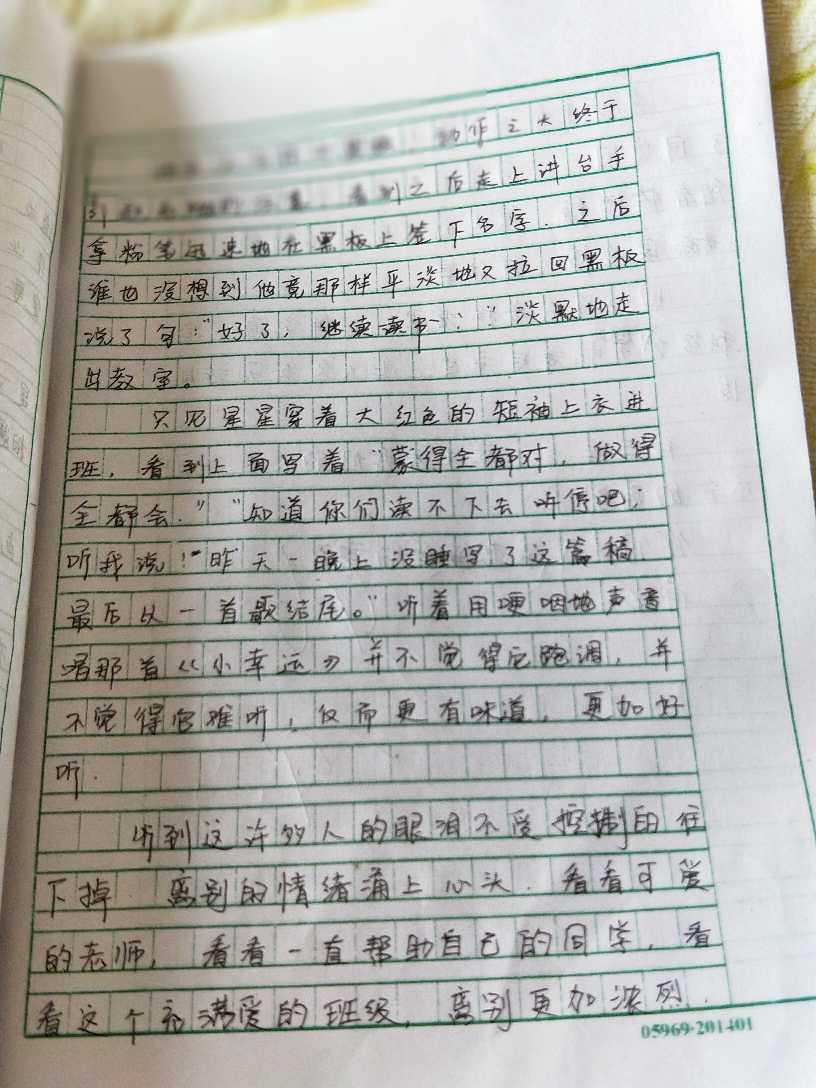 动作之大终于
看到之后走上讲台手
拿粉笔迅速地在黑板上签下名字.之后
谁也没想到他竟那样平淡地又拉回黑板
说了句:"好了,继续读书".淡默地走
出教室。
只见星星穿着大红色的短袖上衣进
班,看到上面写着"蒙得全都对,做得
全都会.""知道你们读不下去听停吧;
听我说!"昨天一晚上没睡写了这篇稿.
最后以一首歌结尾。"听着用哽咽地声音
唱那首《小幸运》并不觉得它跑调,并
不觉得它难听,仅而更有味道,更加好
听.
听到这许多人的眼泪不受控制的往
下掉 离别的情绪涌上心头.看看可爱
的老师,看看一直帮助自己的同学,看
看这个充满爱的班级,离别更加浓烈.
05969·201401